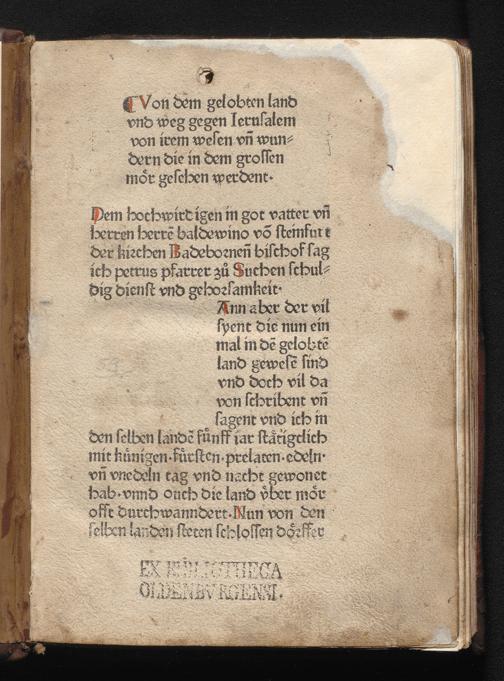 Von dem gelobten land
vnd weg gegen Ierusalem
von irem wesen vn̄ wun⸗
dern die in dem grossen
moͤr gesehen werdent.
Dem hochwirdigen in got vatter vn̄
herren herrē baldewino vō steinfurt
der kirchen Badebornen̄ bischof sag
ich petrus pfarrer zů Suchen schul⸗
dig dienst vnd gehorsamkeit.
Ann aber der vil
syent die nun ein
mal in dē gelobtē
land gewesē sind
vnd doch vil da
von schribent vn̄
sagent vnd ich in
den selben landē fünff iar staͤtigclich
mit künigen. fürsten. prelaten. edeln.
vn̄ vnedeln tag vnd nacht gewonet
hab. vnnd ouch die land v̊ber moͤr
offt durchwanndert. Nun von den
selben landen steten schlossen doͤrffer
EX BIBLIOTHECA
OLDENBVRGENSI.